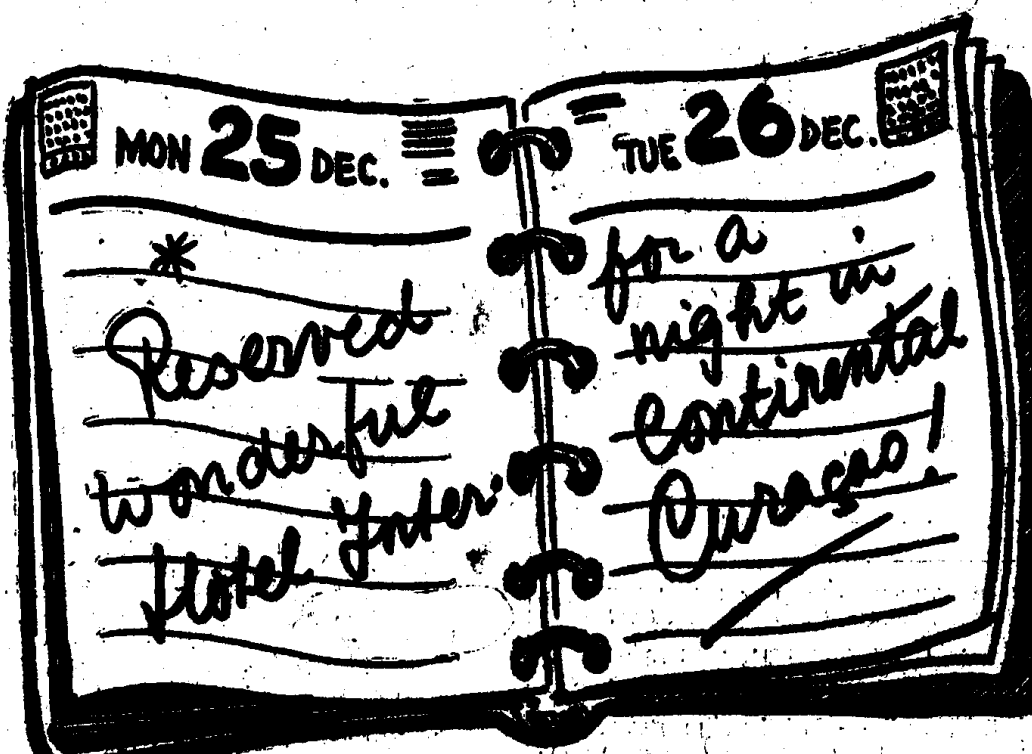 MON 25 DEC.
*
Reserved
wonderful
Hotel Inter-
TUE 26 DEC.
for a
night in
Continental
Curaçao!